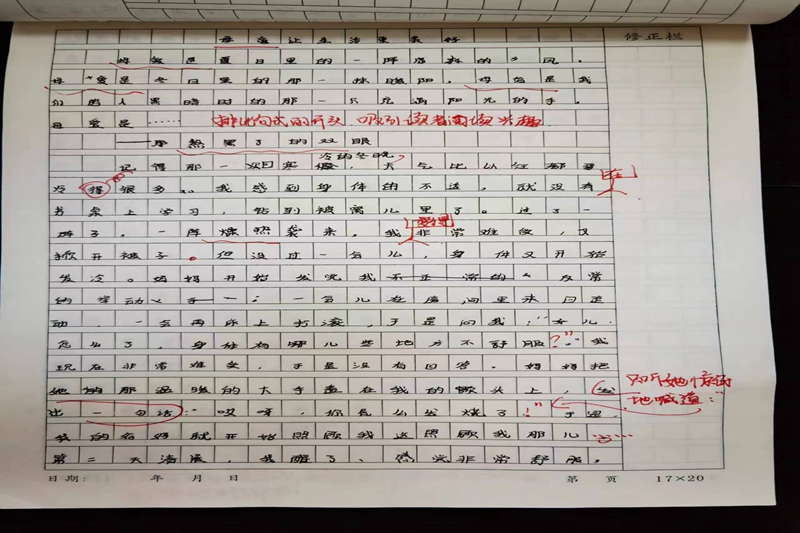 母爱让生活更美好
修正栏
母爱是夏日里的一阵凉爽的风,
母爱是冬日里的那一抹暖阳,母爱是我
们陷入黑暗时的那一只充满阳光的手。
母爱是……
排比句式的开头 吸引读者阅读兴趣
——那熬黑了的双眼
冷的冬晚
记得那一次寒假,天气比以往都要
冷得很多。我感到身体的不适,就没有
在
书桌上学习,钻到被窝儿里了。过了一
觉得
阵子,一阵燥热袭来。我非常难受,又
掀开被子。但没过一会儿,身体又开始
发冷。妈妈开始发觉我不正常的反常
的举动,一会儿在房间里来回走
动,一会再床上打滚,于是问我:"女儿
怎么了,身体有哪儿些地方不舒服?"我
现在非常难受,于是没有回答。妈妈把
她的那温暖的大手盖在我的额头上,发
只听她惊讶
地喊道:"
出一句话:"哎呀,你怎么发烧了!"于是
我的妈妈就开始照顾我这照顾我那儿……
第二天清晨,我醒了、感觉非常舒服。
日期: 年 月 日
第 页 17×20